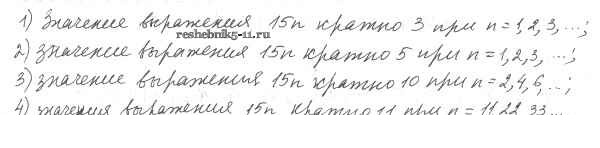 1) Значение выражения 15n кратно 3 при n = 1, 2, 3, ...;
reshebnik5-11.ru
2) значение выражения 15n кратно 5 при n = 1, 2, 3, ...;
3) значение выражения 15n кратно 10 при n = 2, 4, 6, ...;
4) значения выражения 15n кратно 11 при n = 11 22 33...